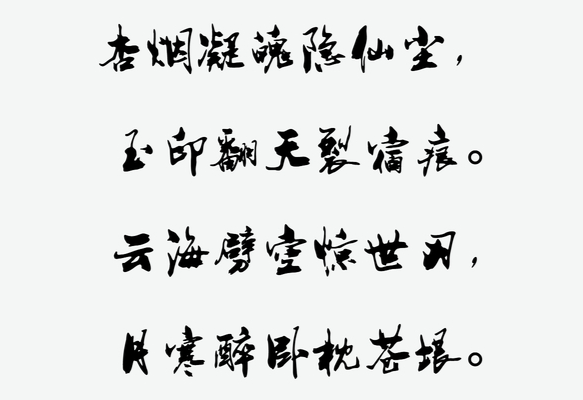 杏烟凝魄隐仙尘，
玉印翻天裂宿痕。
云海劈空惊世刃，
月寒醉卧枕苍垠。